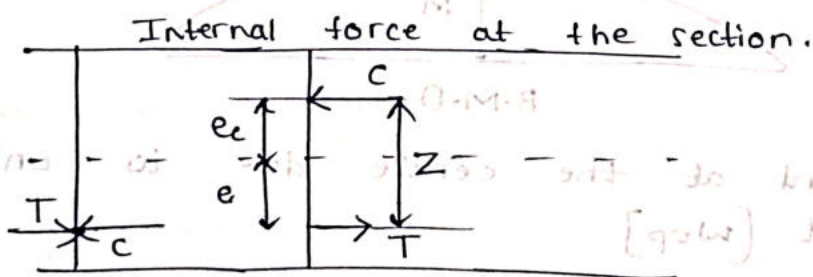 Internal force at the section.
C
e_c
Z
e
T
T
C